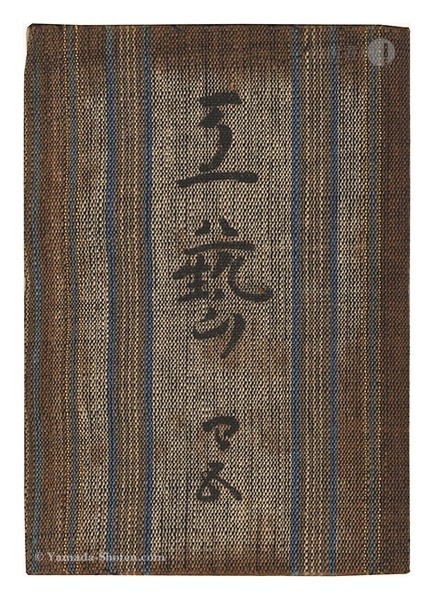 工藝
四五
© Yamada-Shoten.com